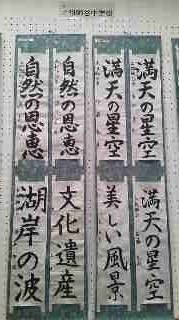 満天の星空
満天の星空
自然の恩恵
自然の恩恵
満天の星空
美しい風景
文化遺産
湖岸の波